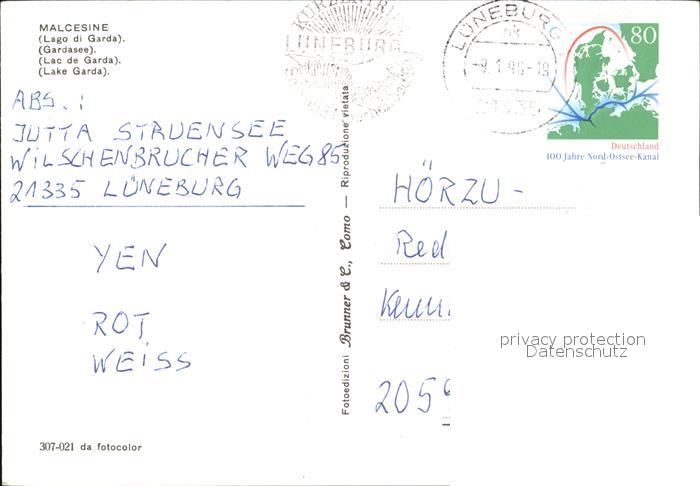 MALCESINE
(Lago di Garda).
(Gardasee).
(Lac de Garda).
(Lake Garda).
ABS.:
JUTTA STRUENSEE
WILSCHENBRUCHER WEG 85
21335 LÜNEBURG
YEN
ROT
WEISS
307-021 da fotocolor
Fotoedizioni Brunner & C., Como — Riproduzione vietata
LÜNEBURG
LÜNEBURG
80
Deutschland
100 Jahre Nord-Ostsee-Kanal
HÖRZU -
Red
privacy protection
Datenschutz